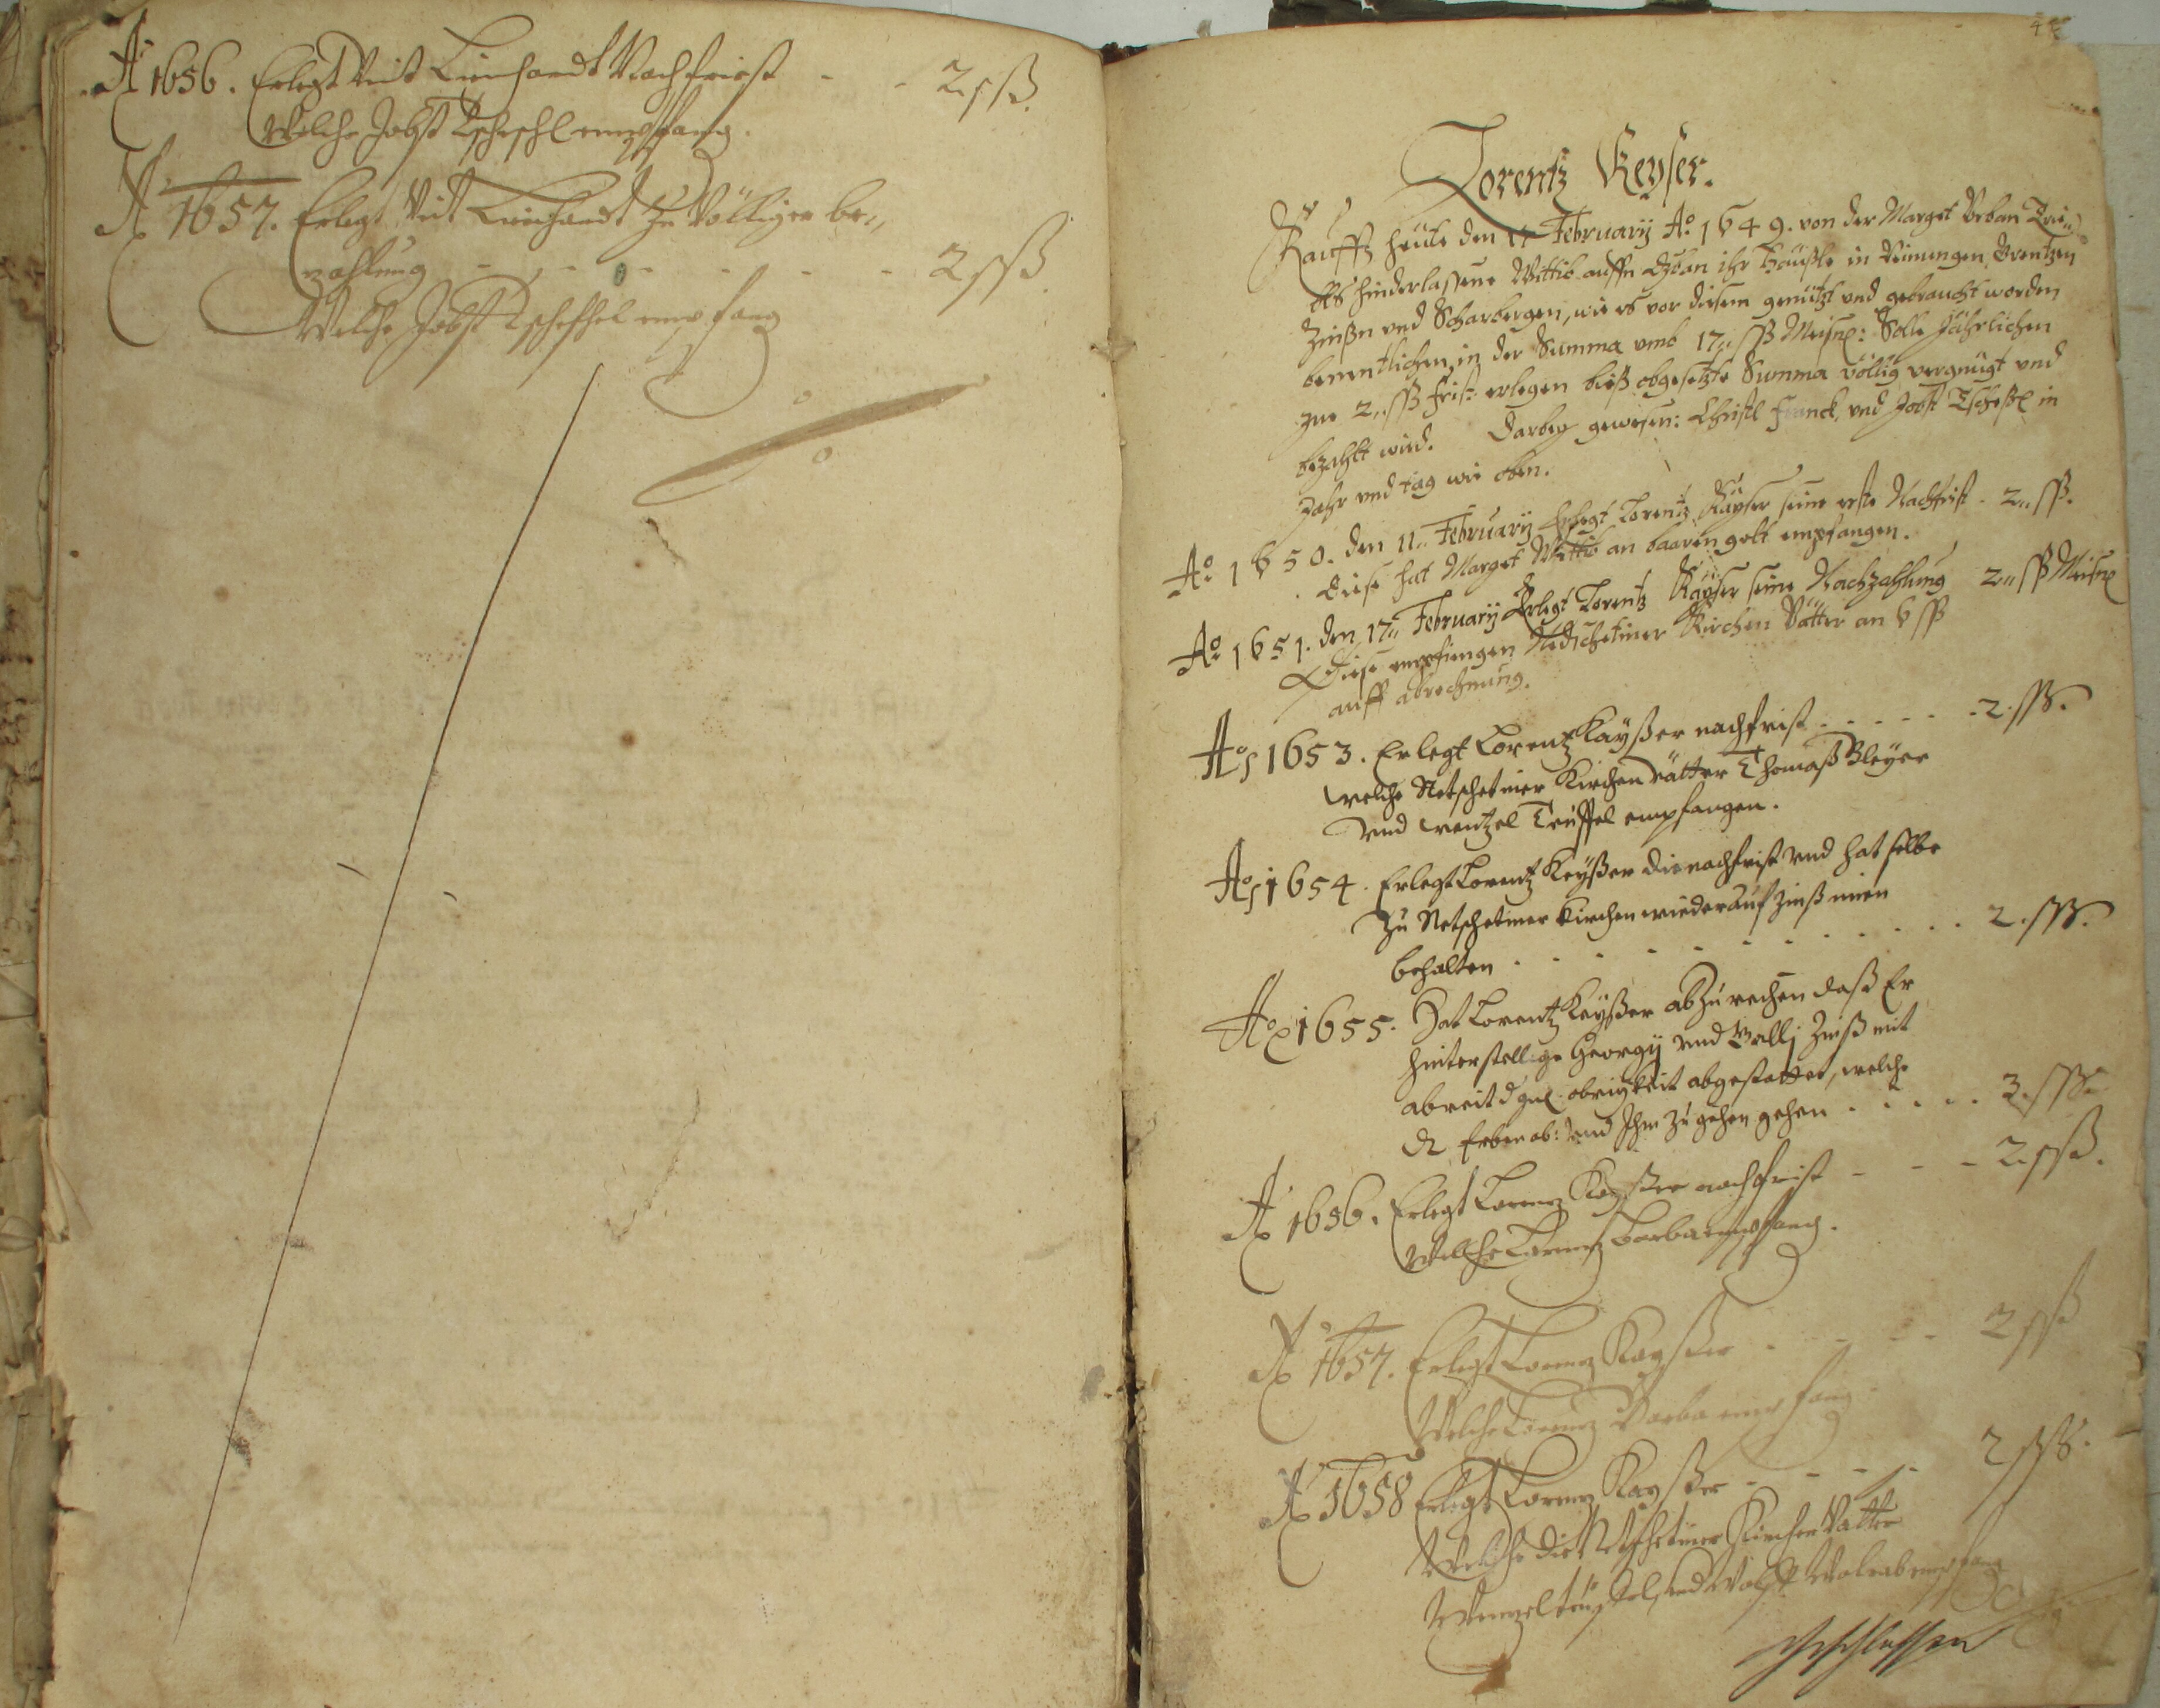 Aº 1656. Erlegt Veit Lienhardt Nachfrist - - 2 ßß.
Welche Jobst Tscheschl empfang.
Aº 1657. Erlegt Veit Lienhardt zu Völliger be„
zahlung - - - - - - - 2 ßß
Welche Jobst Tscheschel empfang
Lorentz Keyser.
Kaufft heute den 17 February Aº 1649. von der Marget Urban
hinderlassene Wittib auffn ihr Häußle in Reinungen, Grentzen
Zinßn und Scharbergen, wie es vor diesem genützt und gebraucht worden
benentlichen, in der Summa umb 17„ ßß Meißn: Solle Jährlichen
zue 2„ ßß frist erlegen bieß obgesetzte Summa völlig vergnügt und
bezahlt wird. Darbey gewesen: Christl Franck, und Jobst Tscheßl in
Jahr und tag wie oben.
Aº 1650. den 11„ February Erlegt Lorentz Kayser seine erste Nachfrist - 2„ ßß.
Diese hat Marget Wittib an baaren gelt empfangen.
Aº 1651. den 17„ February Erlegt Lorentz Kayser seine Nachzahlung 2„ ßß Meißn
Diese empfiengen Netschetiner Kirchen Vätter an 6 ßß
auff abrechnung.
Aº 1653. Erlegt Lorentz Kayßer nachfrist . - - - - 2. ßß.
welche Netschetiner Kirchen vätter Thomaß Bleyer
und wentzel Teuffel empfangen.
Aº 1654. Erlegt Lorentz Keyßer die nachfrist und hat selbe
Zu Netschetiner kirchen wieder auf Zinß innen
behalten . - - - - - - - - 2. ßß.
Aº 1655. Hat Lorentz Keyßer abzurechen daß Er
hinterstellige Georgy und Galli Zinß mit
obrigkeit abgestattet, welche
Erben ab: und Ihm zu gehen gehen . - - - 3. ßß.
Aº 1656. Erlegt Lorenz Kayßer nachfrist - - - 2 ßß.
Welche Lorenz Barba empfang.
Aº 1657. Erlegt Lorenz Kayßer - - - - 2 ßß
Welche Lorenz Barba empfang
Aº 1658 Erlegt Lorenz Kayßer - - - - 2 ßß.
Welche die Netschetiner Kirchen Vätter
Wenzel teuffel, und empfang
Geschlossen